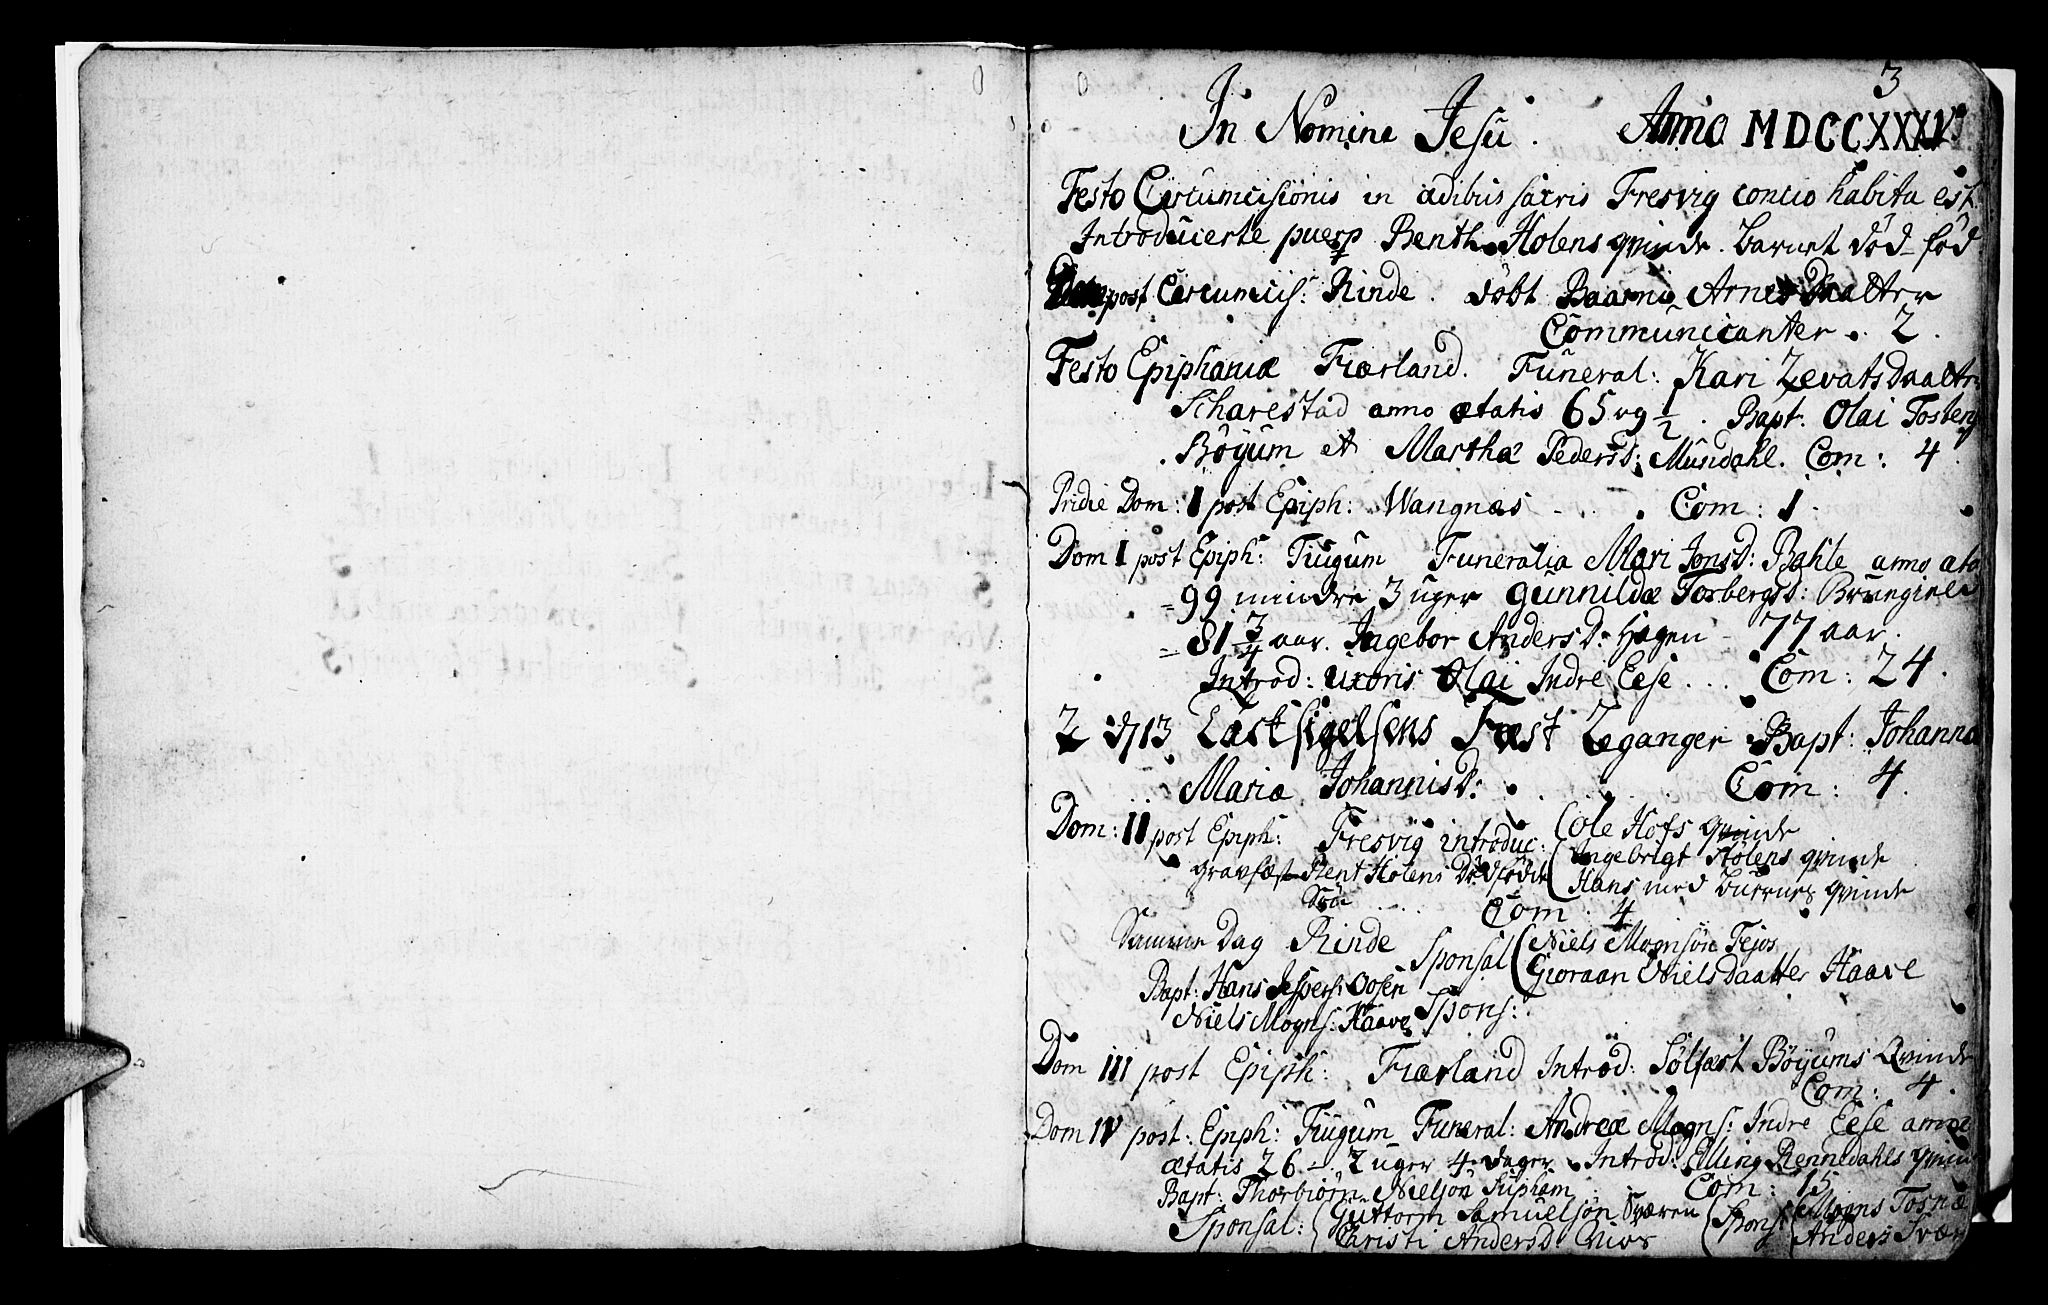 3
In Nomine Jesu . Anno MDCCXXXIV
Festo Circumcisionis in ædibus sacris Fresvig concio habita est
Introducerte puerp Benth Holens qvinde . barnet død fød
Dom post Circumcis: Rinde . døbt Baarni Arnes Daatter
Communicanter . 2 .
Festo Epiphaniæ Fiærland . Funeral: Kari Levats Daattr
Scharestad anno ætatis 65 og 1/2 . Bapt: Olai Tosberg
Bøyum et Martha Pedersd: Mundahl . Com: 4
Pridie Dom: I post Epiph: Wangnæs - . . . Com: 1 .
Dom I post Epiph: Tiugum Funeralia Mari Jonsd: Bahle anno æta
= 99 mindre 3 uger Gunnildæ Torbergsd:
= 81 3/4 aar. Ingebor Andersd: Hagen - 77 aar .
Introd: uxoris Olai Indre Eese . . . Com: 24 .
2 d/13 Tacksigelsens Fæst Leganger . Bapt: Johanna
Maria Johannisd: . . . Com: 4 .
Dom: II post Epiph: Fresvig introduc: Ole Hofs qvinde
Ingebrigt Hølens qvinde
gravfæst Bent Holens Dødfødde Hans qvinde
Søn . . . . Com . 4
Samme Dag Rinde Sponsal Niels Mognsøn Tejos
Gioraan Niels Daatter Haave
Bapt: Hans Jespers: Oosen
Niels Mogns: Haave Spons: .
Dom III post Epiph: Fiærland Introd: Sølfæst Bøyums Qvinde
Com: 4 .
Dom IV post: Epiph: Tiugum Funeral: Andreæ Mogns: Indre Eese anno
ætatis 26 - 2 uger 4 dager . Introd: Elling Rennedahls qvin
Bapt: Thorbiørn Nielsøn Supham Com: 15
Sponsal: Guttorm Samuelsøn Sværen Spons Mogns Tosnæ
Christi Andersd: Anders Svær